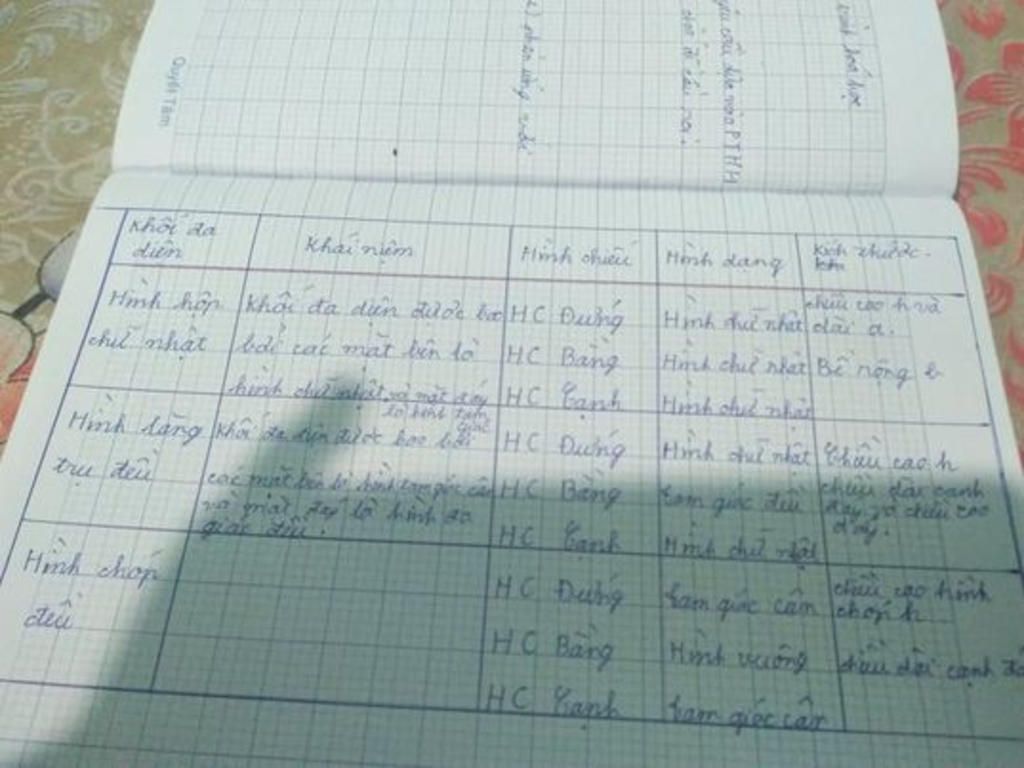 Quyết Tâm
Khối đa diện
Khái niệm
Hình chiếu
Hình dạng
Kích thước
Hình hộp chữ nhật
Khối đa diện được bao
bởi các mặt bên là
hình chữ nhật và mặt đáy
là hình tam giác
HC Đứng
Hình chữ nhật
chiều cao h và
dài a.
HC Bằng
Hình chữ nhật
Bề rộng b
HC Cạnh
Hình chữ nhật
Hình lăng
trụ đều
Khối đa diện được bao bởi
các mặt bên là hình tam giác cân
và mặt đáy là hình đa
giác đều.
HC Đứng
Hình chữ nhật
Chiều cao h
HC Bằng
tam giác đều
chiều dài cạnh
đáy và chiều cao
đáy.
HC Cạnh
Hình chữ nhật
Hình chóp
đều
HC Đứng
tam giác cân
chiều cao hình
chóp h
HC Bằng
Hình vuông
chiều dài cạnh
HC Cạnh
tam giác cân